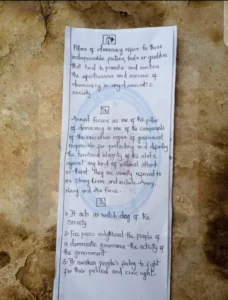 Pillars of democracy refers to those
indispensable, pattern, traits or qualities
that tend to promote and maintain
the and essence of
democracy in any democratic
society
Armed Forces as one of the pillar
of democracy is one of the components
of the executive organ of government
responsible for protecting and dignity
the territorial integrity of the state
against any kind of external attack
or threat they are usually referred to
as strong Arm and include Army,
Navy and Air force.
It acts as watch dog of the
society
Free press enlightened the people of
a democratic governance the activity of
the government
It awaken people's feeling to fight
for their political and civic right.